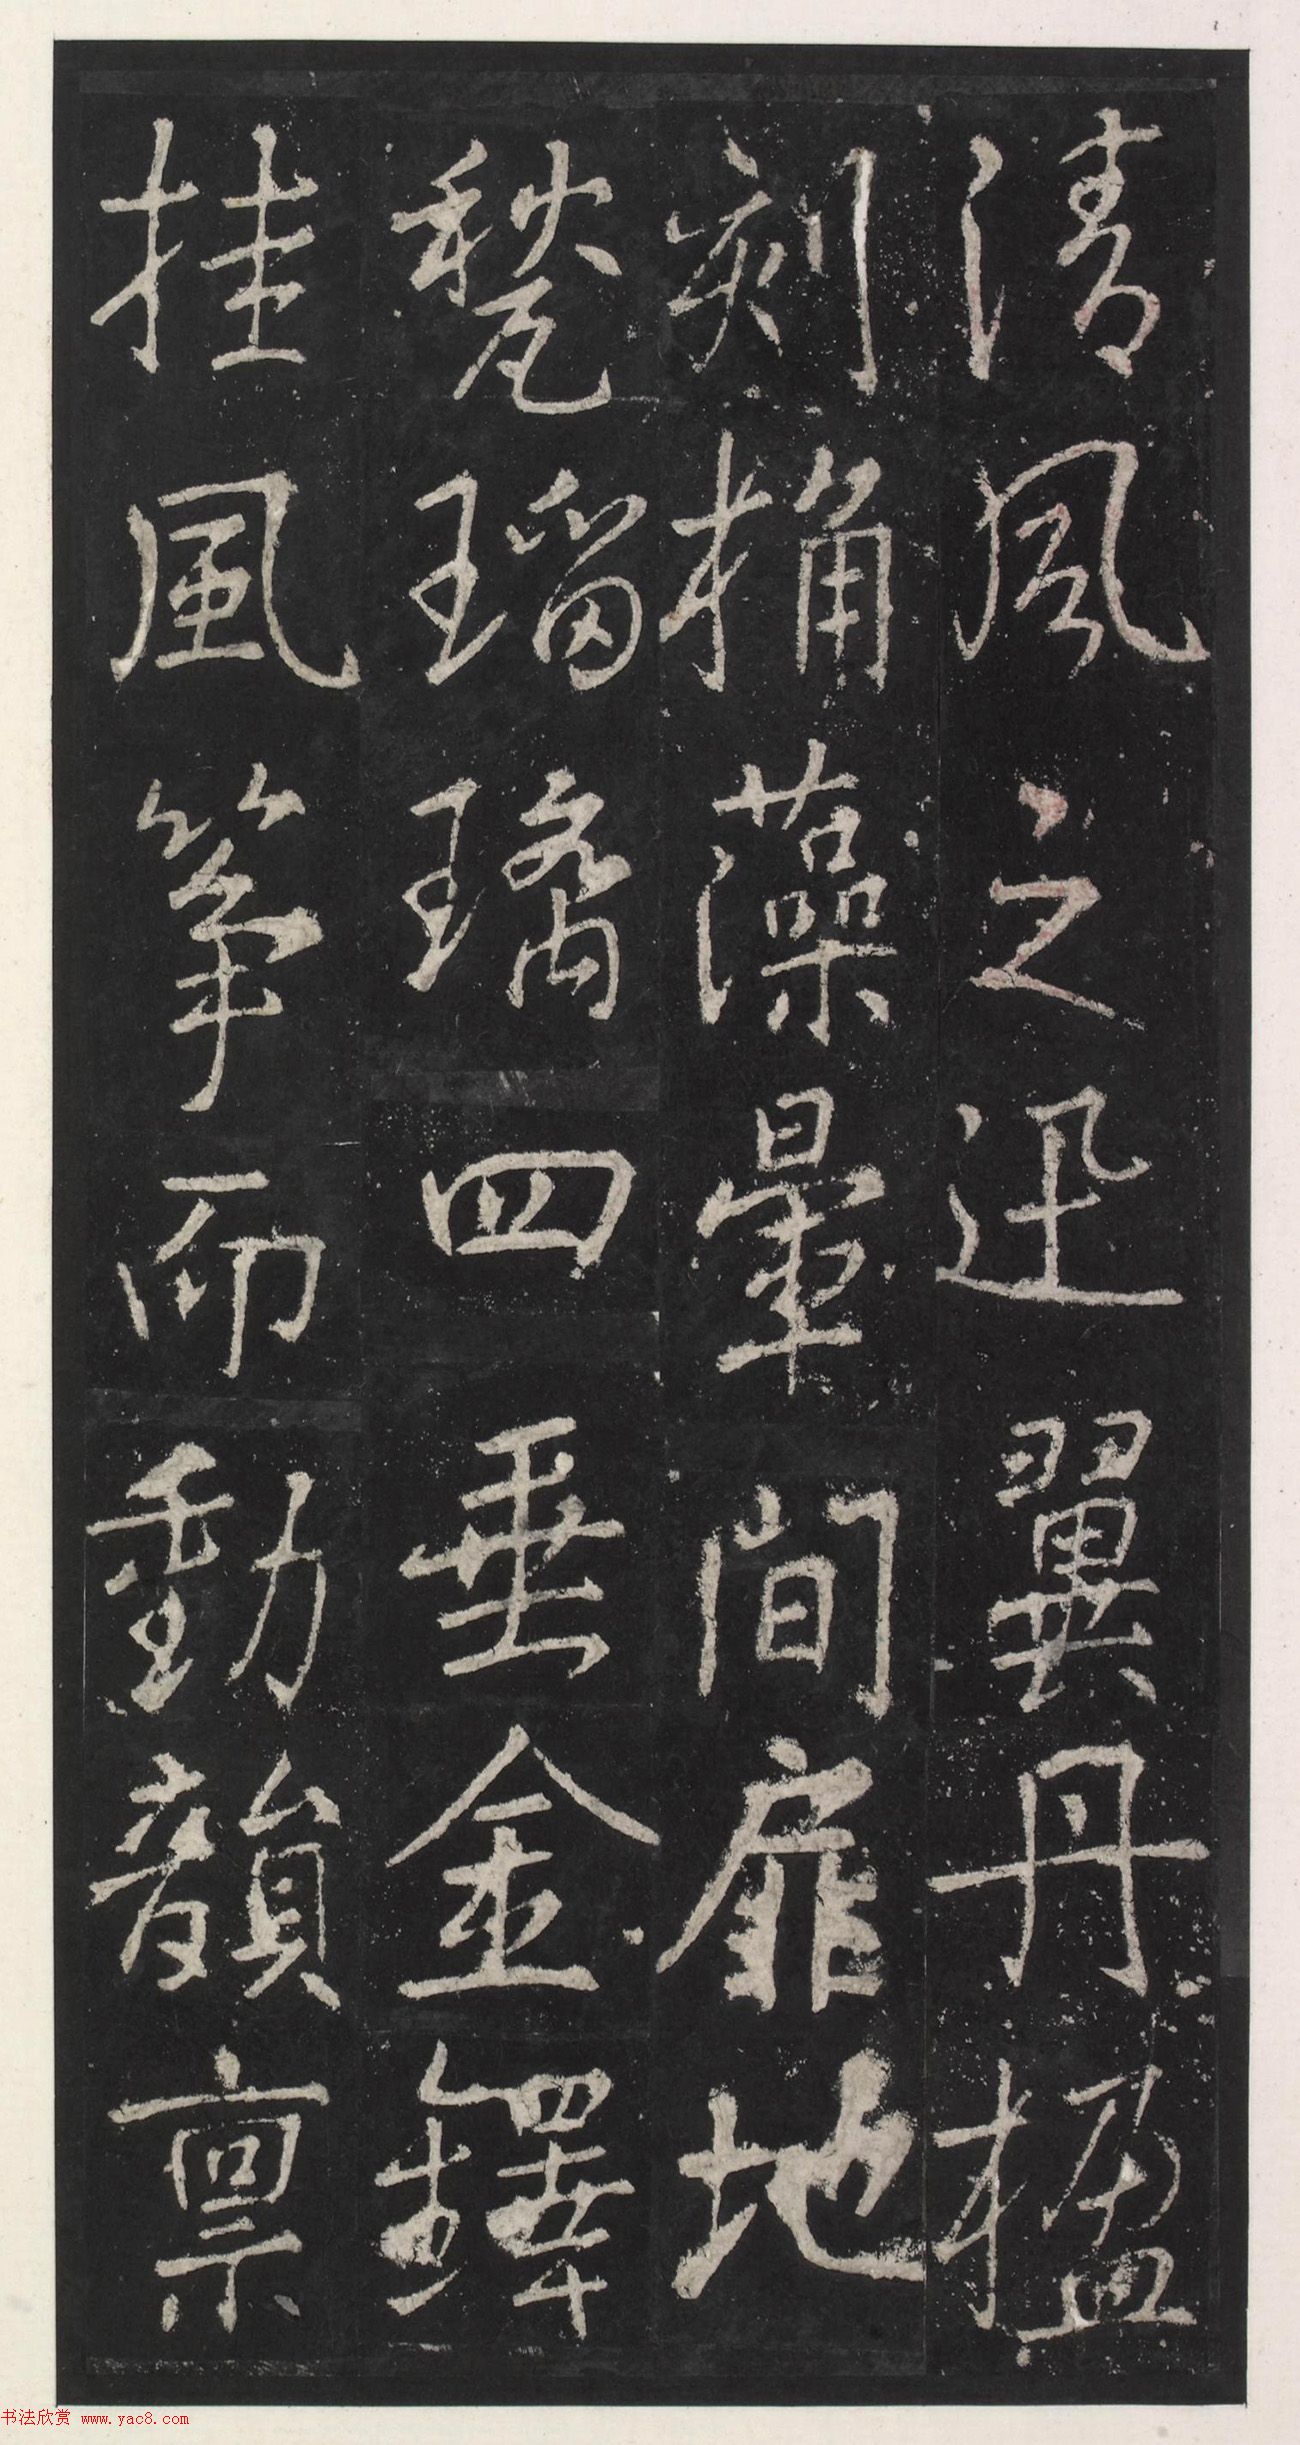 清風之迅翼丹楹
刻桷藻暈間扉地
甃瑠璃四垂金鐸
挂風箏而動韻稟
书法欣赏 www.yac8.com